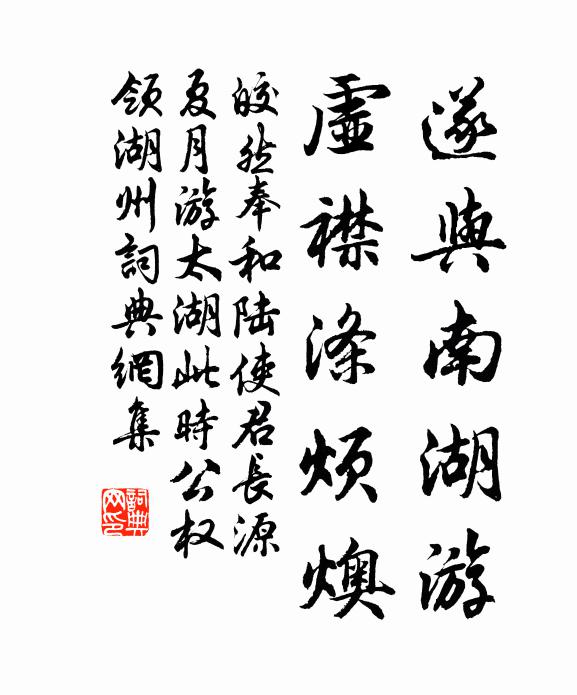 遂與南湖游
虛襟滌煩燠
皎然奉和陆使君長源
夏月游太湖此時公权
領湖州詞典網集
詞典
网印